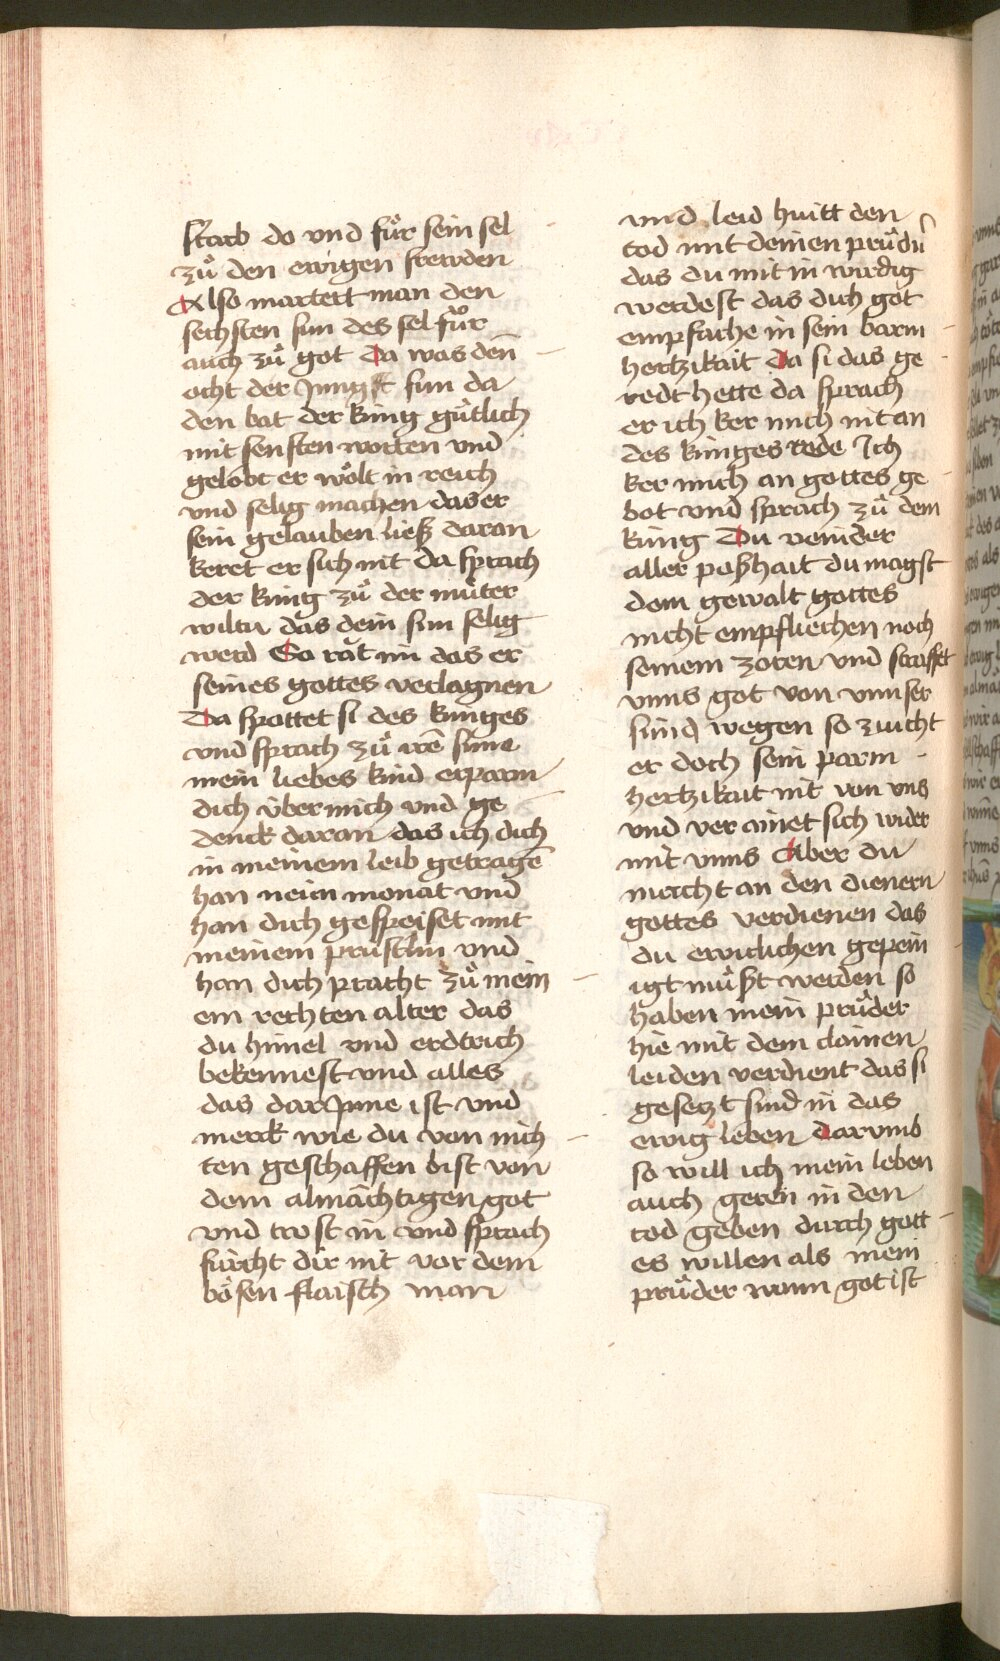 starb do vnd fůr sein sel
zů den ewigen frewden
Also martert man den
sechsten sun des sel fůr
auch zů got Da was deñ
ocht der Jungst sun da
den bat der king gůtlich
mit senften worten vnd
gelobt er wölt in reich
vnd selig machen das er
sein gelauben ließ daran
keret er sich nit Da sprach
der king zů der můter
wiltu das dein sun selig
werd So rät im das er
seines gottes verlagnen
Da spottet si des kinges
vnd sprach zů irē sune
mein liebes kind erparm
dich über mich vnd ge
denck daran das ich dich
in meinem leib getragē
han neün monat vnd
han dich gespeiset mit
meinem prüstlin vnd
han dich pracht zů mein
em rechten alter das
du himel vnd erdtrich
bekennest vnd alles
das dar Jnne ist vnd
merck wie du von nich
ten geschaffen bist von
dem almächtigen got
vnd trost in vnd sprach
fürcht dir nit vor dem
bösen flaisch man
vnd leid huitt den
tod mit deinen prüdn̄
das du mit in wirdig
werdest das dich got
empfache in sein barm
hertzikait Da si das ge
redt hette da sprach
er ich ker mich nit an
des kinges rede Ich
ker mich an gottes ge
bot vnd sprach zů dem
king Du veinder
aller poßhait du magst
dem gewalt gottes
nicht empfliechen noch
seinem zoren vnd straffet
vnns got von vnnser
sünd wegen so zuicht
er doch sein parm
hertzikait nit von vns
vnd ver ainet sich wider
mit vnns Aber du
macht an den dienern
gottes verdienen das
du ewiclichen gepein
igt můßt werden so
haben mein průder
hie mit dem clainen
leiden verdient das si
gesetzt sind in das
ewig leben Darumb
so will ich mein leben
auch geren in den
tod geben durch gott
es willen als mein
prüder wann got ist